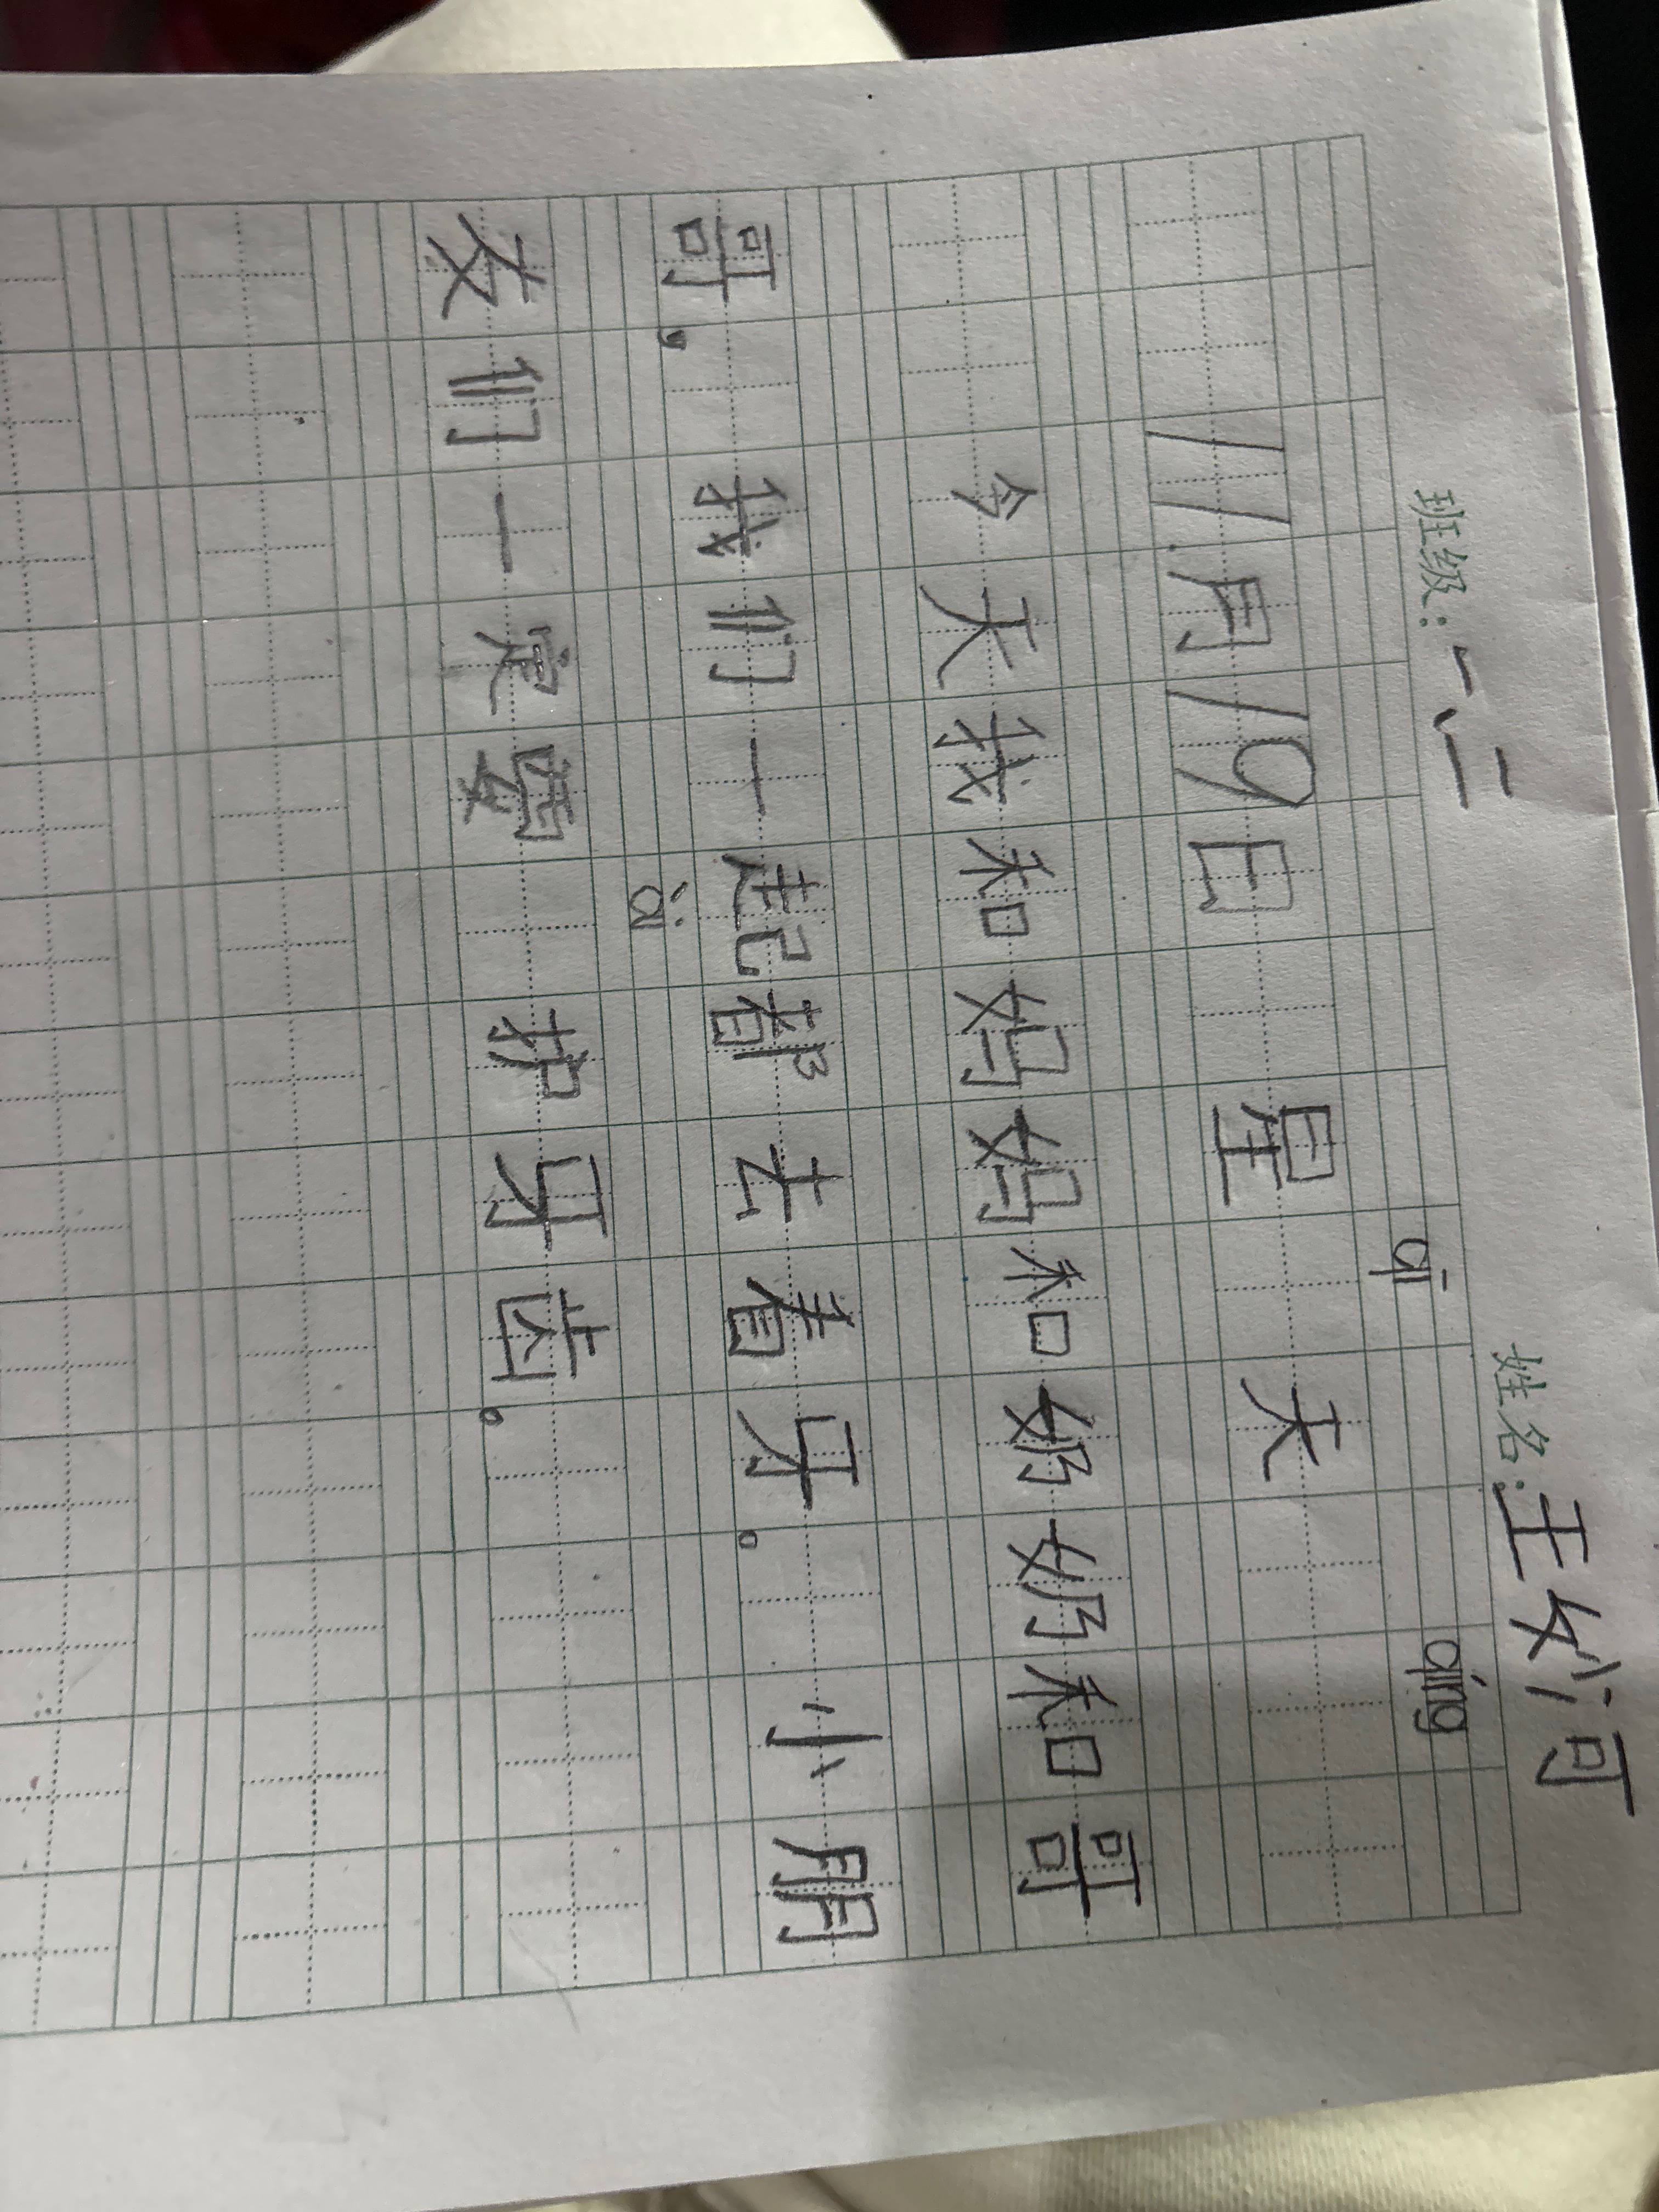 班级：一、二 姓名：王妙可
11月19日 星qī天 qíng
今天我和妈妈和奶奶和哥
哥，我们一起都去看牙。小朋
友们一定要ài护牙齿。